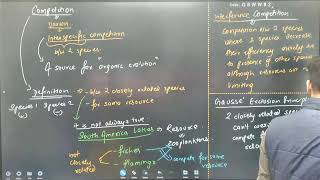 Competition
Darwin
Interspecific competition
b/w 2 species
A source for "organic evolution"
Definition - b/w 2 closely related species
Species 1 Species 2 - for same resource
(-) (-)
it is not always true
South America Lakes → Resource
zooplanktons
not closely related
fishes
flamingo
compete for same resource
Interference Competition
Competition b/w 2 species
where 2 species decrease
their efficiency merely due
to presence of other species
although resources are not
limiting
Gausse' Exclusion Principle
2 closely related spe
can't coexi
compete fo
reso